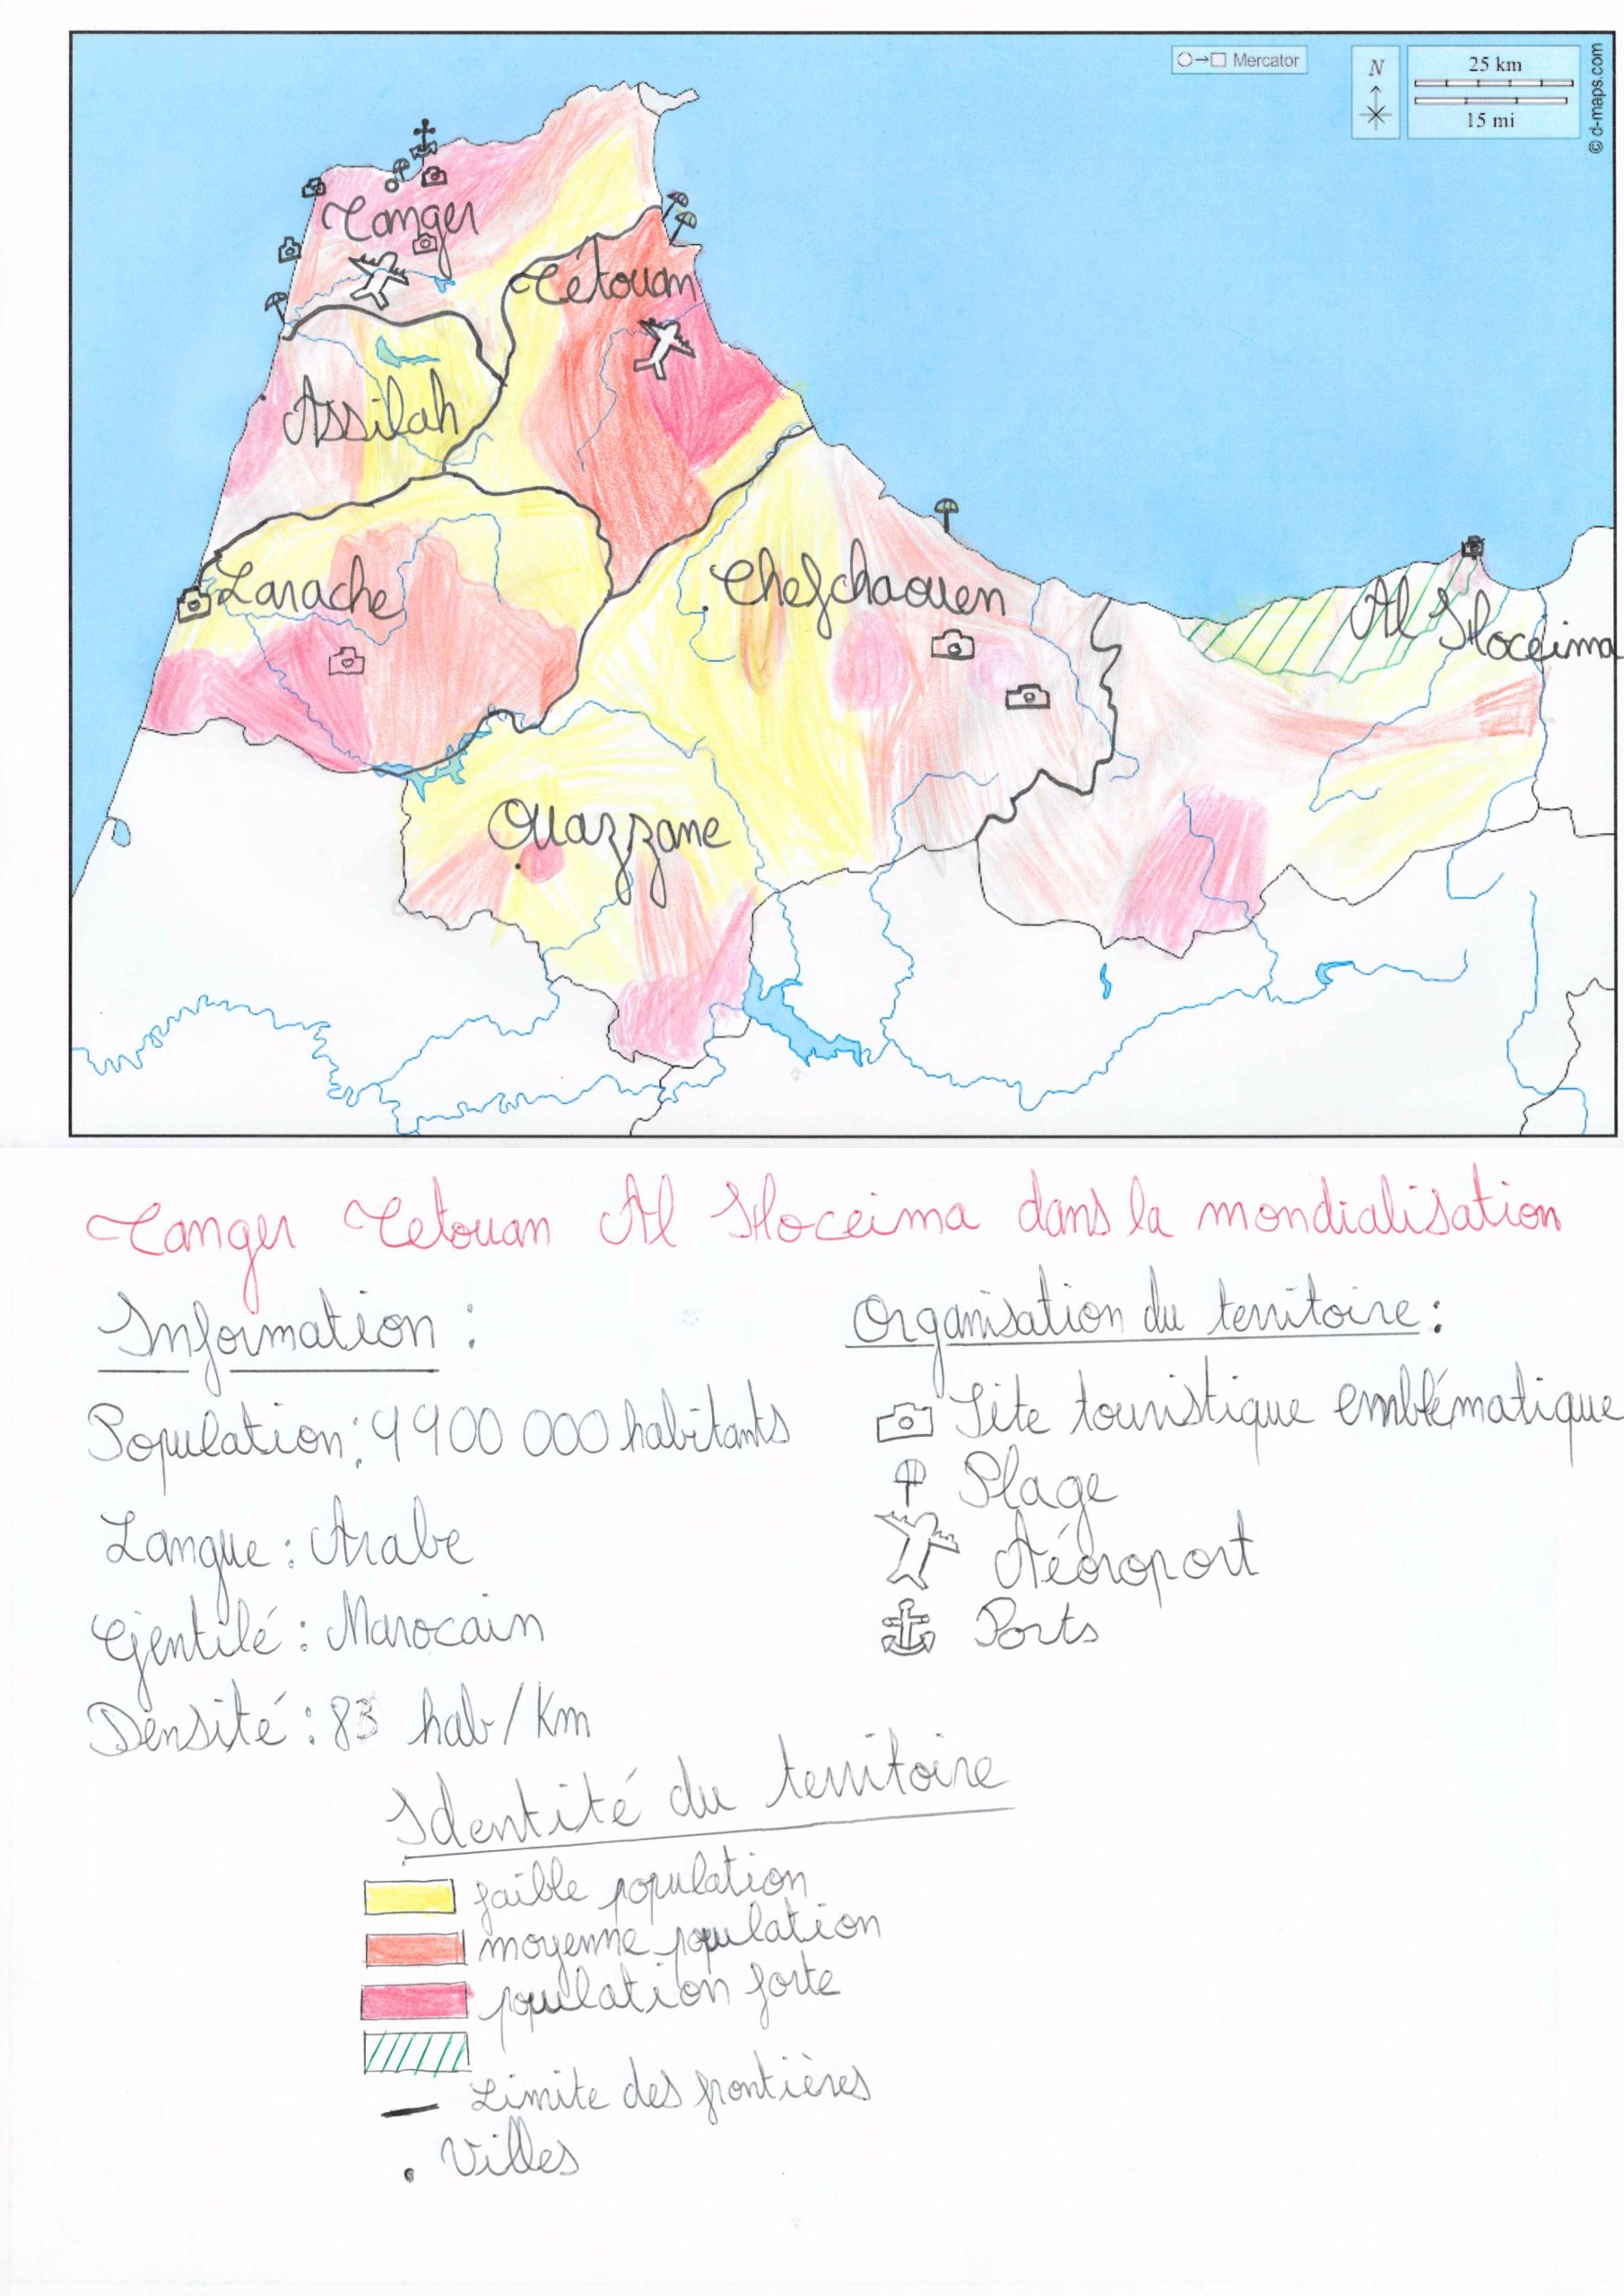 Mercator
N
25 km
15 mi
© d-maps.com
Tanger
Tétouan
Assilah
Larache
Chefchaouen
Al Hoceima
Ouazzane
Tanger Tetouan Al Hoceima dans la mondialisation
Information :
Population : 4 400 000 habitants
Langue : Arabe
Gentilé : Marocain
Densité : 83 hab/Km
Organisation du territoire :
Site touristique emblématique
Plage
Aéoroport
Ports
Identité du territoire
faible population
moyenne population
population forte
Limite des frontières
Villes